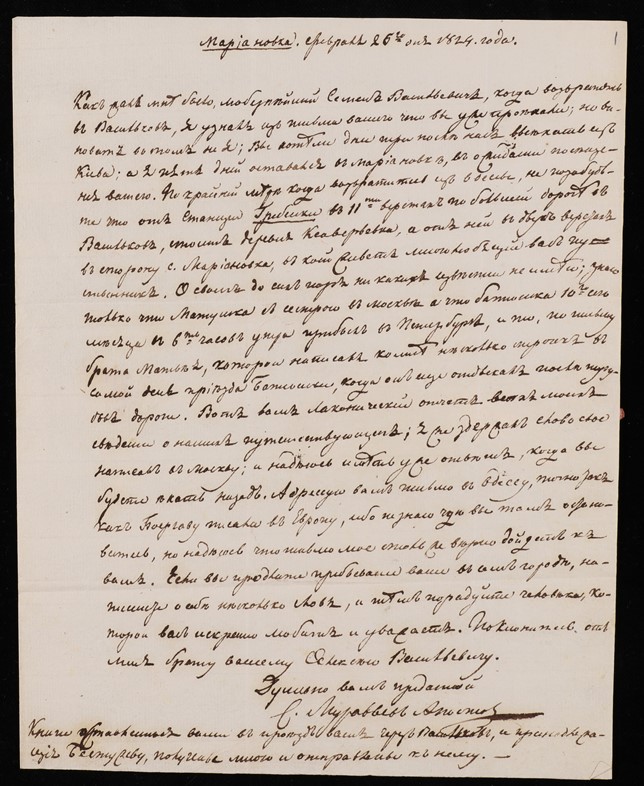 Маріановка. февраля 26го дня 1824. года.
1
Какъ жаль мнѣ было, любезнѣйшій Семенъ Васильевичъ, когда возвратясь
въ Васильковъ, я узналъ изъ письма вашего что вы уже проѣхали; но ви-
новатъ въ томъ не я; Вы хотѣли дни три послѣ насъ выѣхать изъ
Кіева; а я цѣлые дни оставался въ Маріановкѣ, въ ожиданіи посѣще-
нія вашего. По крайней мѣрѣ когда возвратитесь изъ Одессы, не позабудь-
те что отъ Станціи Гребенки въ 11ти верстахъ по большой дорогѣ въ
Васильковъ, стоитъ деревня Ксаверовка, а отъ ней въ двухъ верстахъ
въ сторону с. Маріановка, въ коей живетъ много любящій васъ
О своихъ до сихъ поръ никакихъ извѣстій не имѣю; знаю
только что Матушка съ сестрою въ Москвѣ а что батюшка 10го сего
мѣсяца въ 6ть часовъ утра прибылъ въ Петербургъ, и то, по письму
брата Матвѣя, которой написалъ ко мнѣ нѣсколько строчекъ въ
самой день пріѣзда Батюшки, когда онъ еще отдыхалъ послѣ
дороги. Вотъ вамъ Лаконической отчетъ моихъ
свѣдѣній о нашихъ путешествующихъ; я же сдержалъ слово свое
написалъ въ Москву; и надѣюсь имѣть уже отвѣтъ, когда вы
будете ѣхать назадъ. Адресую вамъ письмо въ Одессу, точно такъ
какъ писалъ въ Европу, ибо не знаю гдѣ вы тамъ остано-
витесь, но надѣюсь что письмо мое столь же вѣрно дойдетъ къ
вамъ. Если вы продлите пребываніе ваше въ семъ городѣ, на-
пишите о себѣ нѣсколько словъ, и тѣмъ порадуйте человѣка, ко-
торой васъ искренно любитъ и уважаетъ. Поклонитесь отъ
меня брату вашему Алексѣю Васильевичу.
Душевно вамъ преданный
С. Муравьевъ Апостолъ
Книги оставленныя вами въ проѣздъ вашъ черезъ Васильковъ, и принадлежа-
щія Бестужеву, получены мною и отправлены къ нему. —